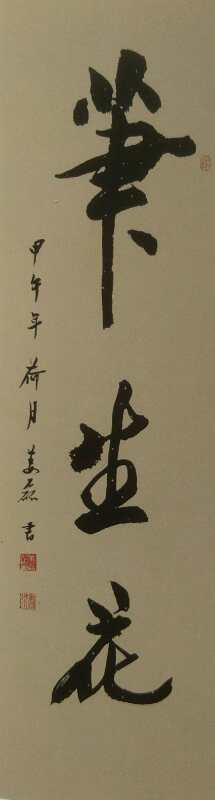 筆生花
甲午年荷月姜磊書